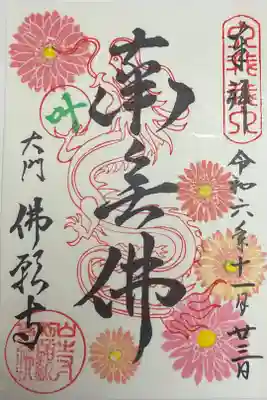 奉拝
令和六年十一月廿三日
南無佛
叶
大門 佛願寺